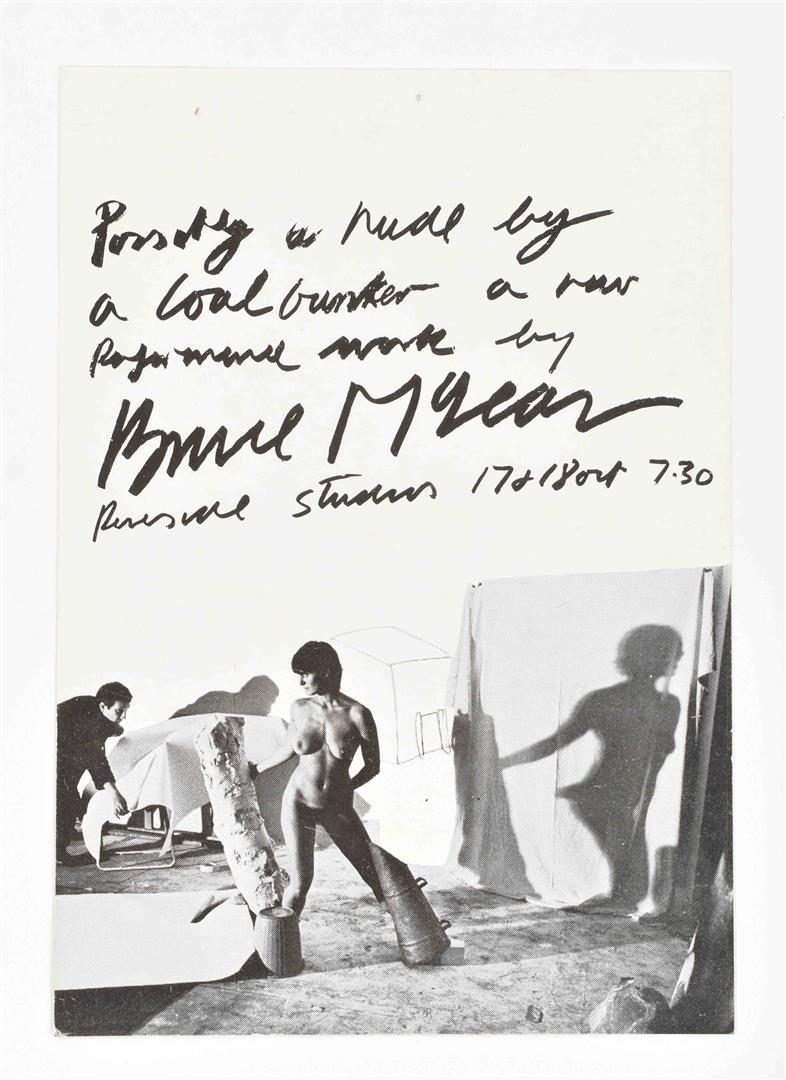 Possibly a nude by
a coal bunker a new
Performance work by
Bruce McLean
Riverside studios 17&18 oct 7.30